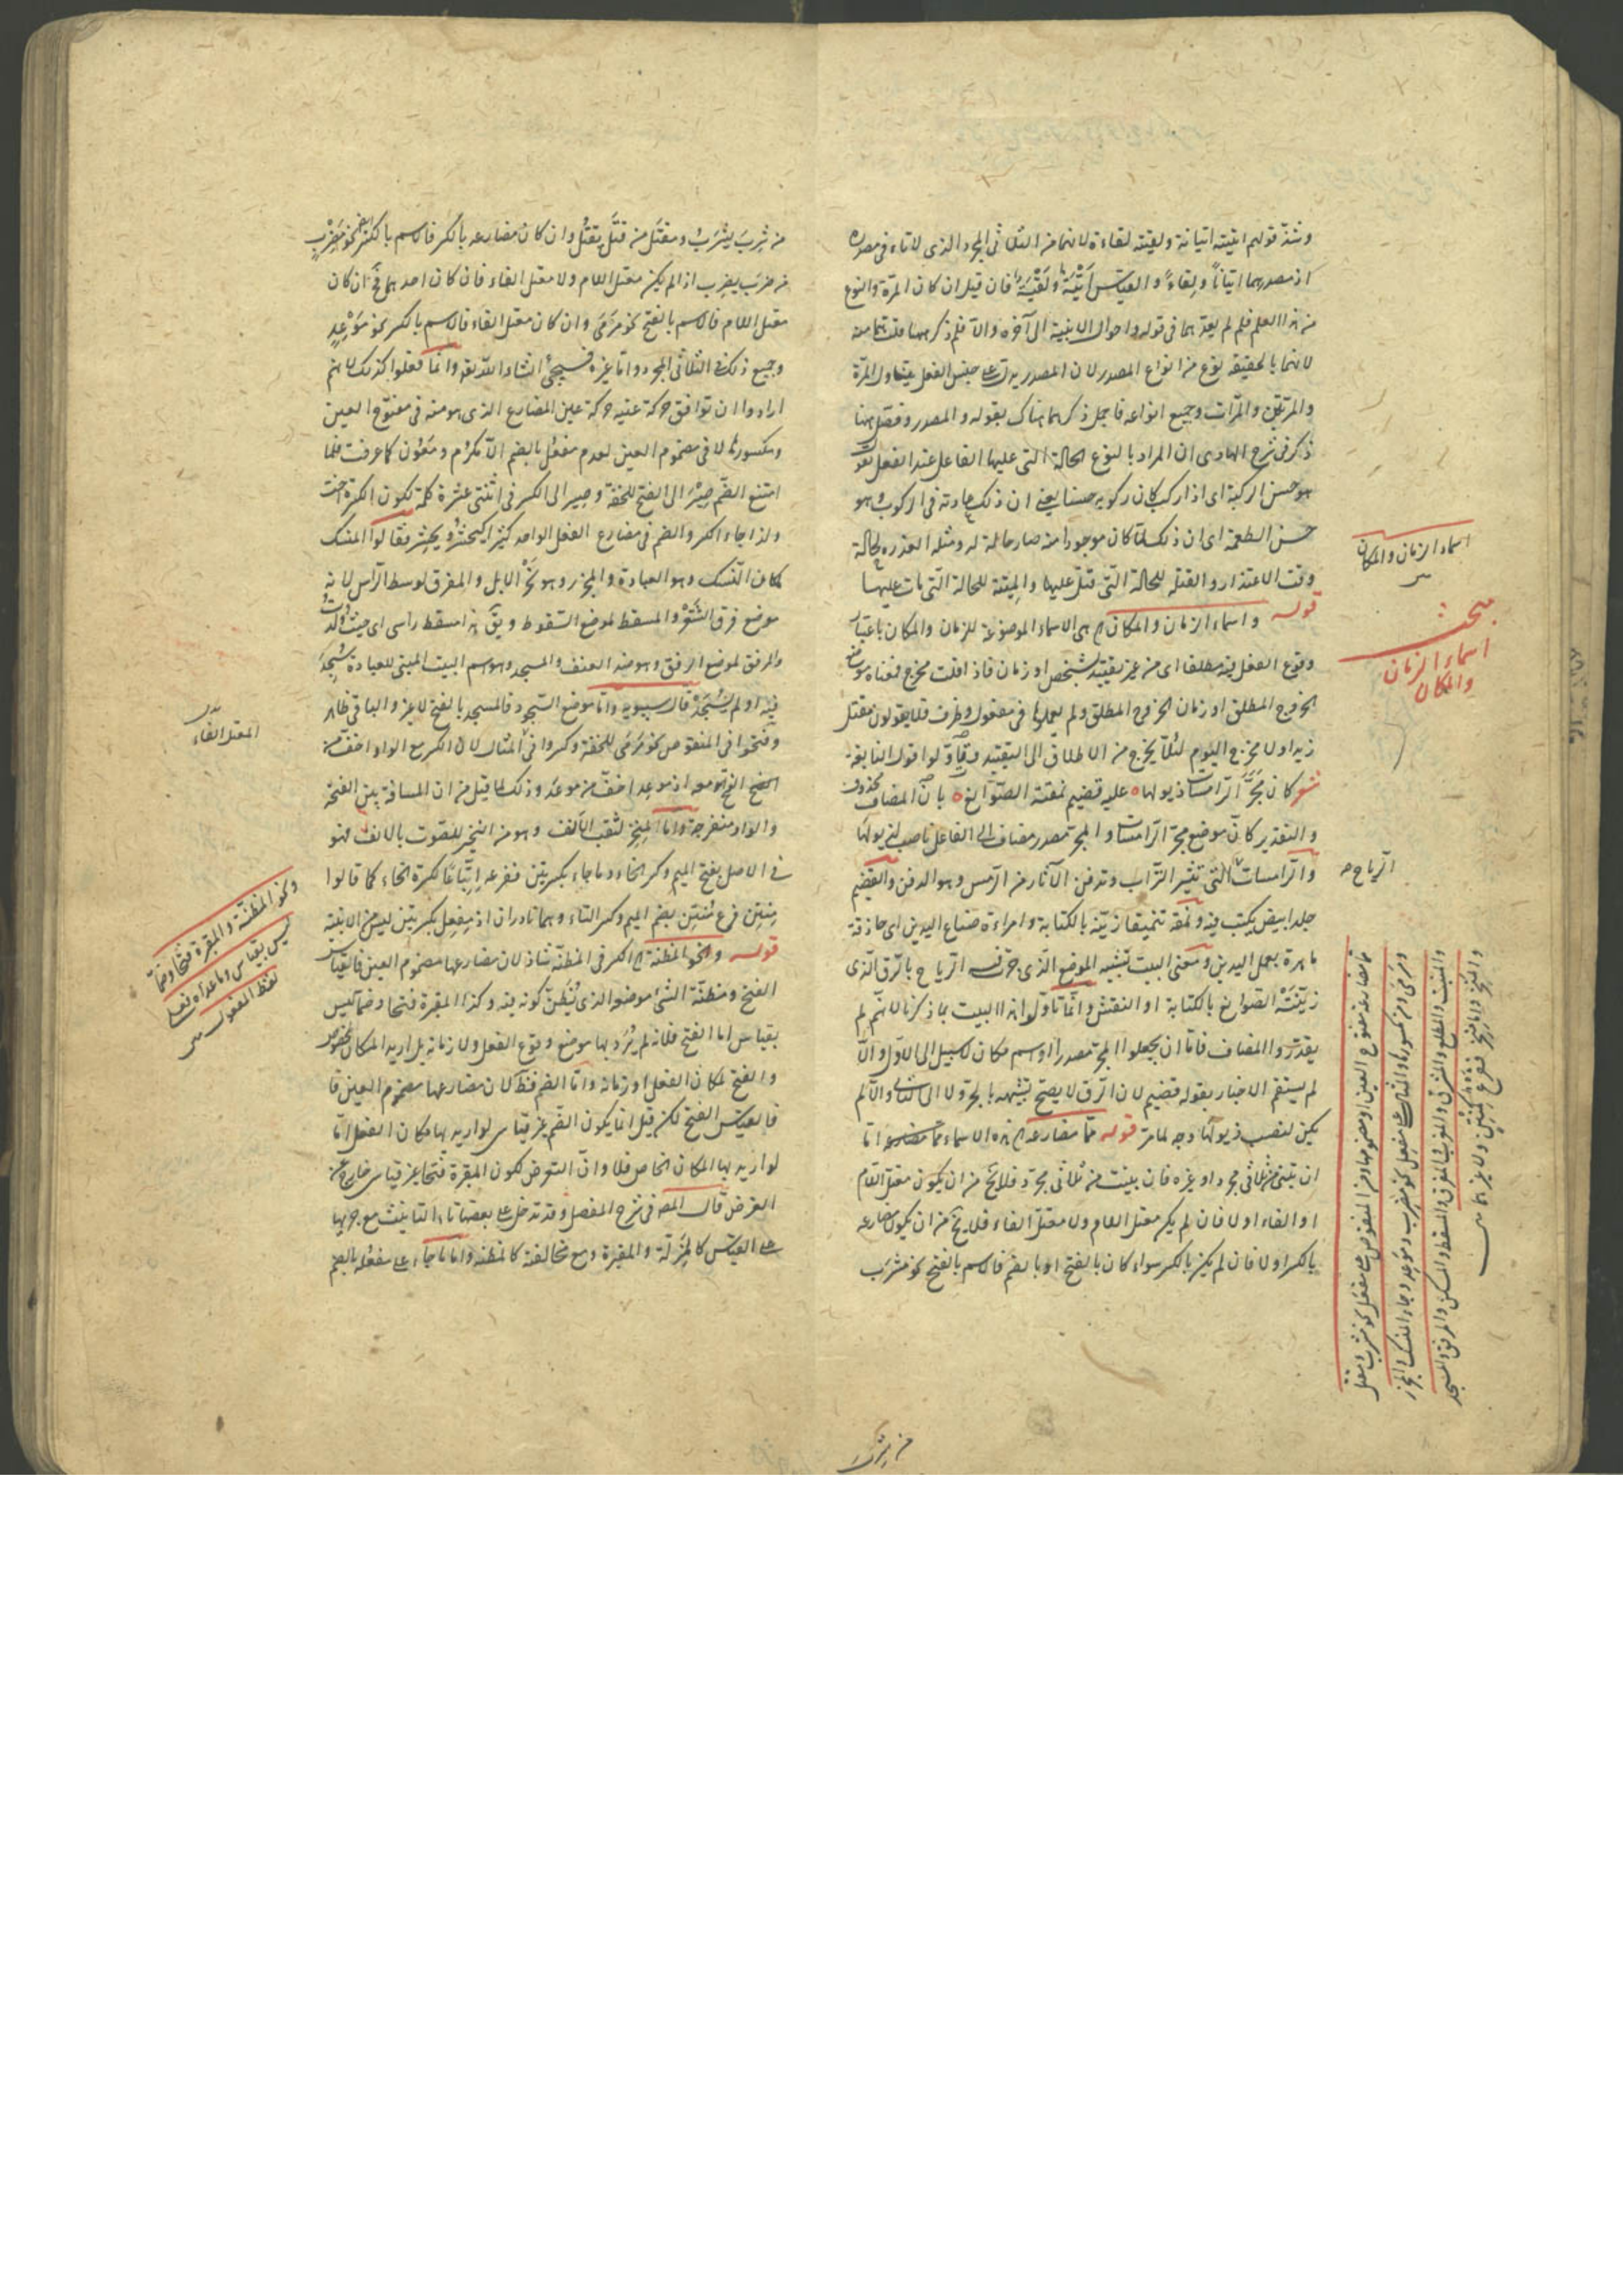 وشذ قولهم اتيته اتيانة ولقيته لقاءة لانهما من الثلاثى المجرد الذى لا تاء فى مصدره
اذ مصدرهما اتياناً ولقاءً والقياس اَتْيَةً ولَقْيَةً فان قيل ان كان المرة والنوع
من هذا العلم فلم لم يعدهما فى قوله واحوال الابنية الى آخره والا فلم ذكرهما
لانهما بالحقيقة نوع من انواع المصدر لان المصدر يدل على جنس الفعل فيتناول المرة
والمرتين والمرات وجميع انواعه فاجمل ذكرهما هناك بقوله والمصدر وفصل هنا
ذكر فى شرح الهادى ان المراد بالنوع الحالة التى عليها الفاعل عند الفعل تقول
هو حسن الركبة اى اذا ركب كان ركوبه حسنا يعنى ان ذلك عادته فى الركوب وهو
حسن الطعمة اى ان ذلك لما كان موجودا منه صار حالة له ومثله العذرة لحالة
وقت الاعتذار والقتلة للحالة التى قتل عليها والميتة للحالة التى مات عليها
قوله واسماء الزمان والمكان هى الاسماء الموضوعة للزمان والمكان باعتبار
وقوع الفعل فيه مطلقا اى من غير تقييد بشخص او زمان فاذا قلت مخرج فمعناه موضع
الخروج المطلق او زمان الخروج المطلق ولم يعملوها فى مفعول وظرف فلا يقولون مقتل
زيدا ولا مخرج اليوم لئلا يخرج من الاطلاق الى التقييد واوّلوا قول النابغة
شعر كان مَجَرَّ الرامسات ذيولها ه عليه قضيم نمقته الصوانع ه بان المضاف محذوف
والتقدير كانّ موضع مجر الرامسات والمجر مصدر مضاف الى الفاعل ناصب لذيولها
والرامسات التى تثير التراب وتدفن الآثار من الرمس وهو الدفن والقضيم
جلد ابيض يكتب فيه ونمقه تنميقا زينه بالكتابة وامراءة صناع اليدين اى حاذقة
ماهرة بعمل اليدين ومعنى البيت تشبيه الموضع الذى الرياح بالرق الذى
زيّنَتْه الصوانع بالكتابة او النقش وانما تاولوا هذا البيت بما ذكرنا لانهم لم
يقدروا المضاف فاما ان يجعلوا المجر مصدرا او اسم مكان لا سبيل الى الاول والا
لم يستقم الاخبار بقوله قضيم لان الرق لا يصح تشبيهه بالجر ولا الى الثانى والا لم
يكن لنصب ذيولها وجه لما مر قوله مما مضارعه هذه الاسماء اما
ان تبنى من ثلاثى مجرد او غيره فان بنيت من ثلاثى مجرد فلا يخ من ان يكون معتل اللام
او الفاء او لا فان لم يكن معتل اللام ولا معتل الفاء فلا يخ من ان يكون مضارعه
بالكسر او لا فان لم يكن بالكسر سواء كان بالفتح او بالضم فالاسم بالفتح نحو مشرَب
من شرب
اسماء الزمان والمكان
مبحث
اسماء الزمان
والمكان
الرياح
مما مضارعه مفتوح العين او مضمومها ومن المنقوص على مَفْعَل نحو مشرب ومقتل
ومرمى ومن مكسورها والمثال على مفعِل نحو مضرب وموعد وجاء المنسك والمجزر
والمنبت والمطلع والمشرق والمغرب والمفرق والمسقط والمسكن والمرفق والمسجد
والمنخر واما منخر ففرع كمنتن ولا غيرهما
من شرِبَ يشرَبُ ومقتَل من قتَل يقتُل وان كان مضارعه بالكسر فالاسم بالكسر نحو مَضرِب
من ضرَب يضرِب اذا لم يكن معتل اللام ولا معتل الفاء فان كان احدهما فَ ان كان
معتل اللام فالاسم بالفتح نحو مَرْمَى وان كان معتل الفاء فالاسم بالكسر نحو مَوْعِدٍ
وجميع ذلك فى الثلاثى المجرد واما غيره فسيجئ انشاء الله تعه وانما فعلوا كذلك لانهم
ارادوا ان توافق حركة عينه حركة عين المضارع الذى هو منه فى مفتوح العين
ومكسورها لا فى مضموم العين لعدم مفعُل بالضم الا مكرُم ومعُون كما عرفت فلما
امتنع الضم صِيْرَ الى الفتح للخفة وصير الى الكسر فى اثنتى عشرة كلمة لكون الكسرة اخت
ولذا جاء الكسر والضم فى مضارع الفعل الواحد كثيرا كيحشُر ويحشِر فقالوا المنسك
لمكان النسك وهو العبادة والمجزر وهو نَحْر الابل والمفرق لوسط الرأس لانه
موضع فرق الشَعْر والمسقط لموضع السقوط ويق هذا مسقط رأسى اى حيث وُلدتُ
والمرفق لموضع الرفق وهو ضد العنف والمسجد وهو اسم البيت المبنى للعبادة سُجِدَ
فيه او لم يُسْجَدْ قال سيبويه واما موضع السجود فالمسجد بالفتح لا غير والباقى ظاهر
وفتحوا فى المنقوص نحو مَرْمَى للخفة وكسروا فى المثال لان الكسر مع الواو اخف من
الفتح معه اذ موعِد اخف من موعَد وذلك لما قيل من ان المسافة بين الفتحة
والواو منفرجة واما المِنِخر لثقب الأنف وهو من النخير للصوت بالانف فهو
فى الاصل بفتح الميم وكسر الخاء وما جاء بكسرتين ففرعه اِتْبَاعًا لكسرة الخاء كما قالوا
مِنتِن فرع مُنتِن بضم الميم وكسر التاء وهما نادران اذ مِفعِل بكسرتين ليس من الابنية
قوله ونحو المظنة الكسر فى المظنة شاذ لان مضارعها مضموم العين فالقياس
الفتح ومظنة الشئ موضعه الذى يُظَنّ كونه فيه وكذا المقبرة فتحا وضما ليس
بقياس اما الفتح فلانه لم يُرَد بها موضع وقوع الفعل ولا زمانه بل اريد المكان المخصوص
والفتح لمكان الفعل او زمانه واما الضم فظ لان مضارعها مضموم العين
فالقياس الفتح لكن قيل انما يكون الضم غير قياس لو اريد بها مكان الفعل اما
لو اريد بها المكان الخاص فلا وان التعرض لكون المقبرة فتحا غير قياس خارج عن
الغرض قال المص فى شرح المفصل وقد تدخل على بعضها تاء التانيث مع جريها
على القياس كالمَزَلّة والمقبرة ومع مخالفته كالمظنة واما ما جاء على مفعُلة بالضم
المعتل الفاء
ونحو المظنّة والمقبرة فتحًا وضمًّا
ليس بقياس وما عداه فعلى
لفظ المفعول